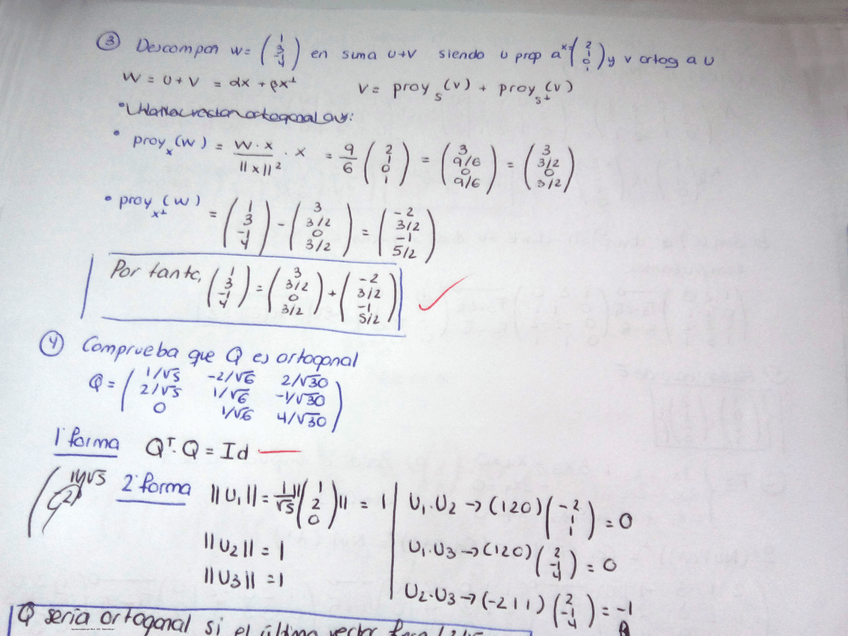 ③ Descompon w = (1 3 -1 4) en suma u+v siendo u prop a x=(2 1 0 1) y v ortog a u
W = U + V = αx + βx⊥ V = proy_S (v) + proy_S⊥ (v)
• proy_x (w) = W·x / ||x||² · x = 9/6 (2 1 0 1) = (3 9/6 0 9/6) = (3 3/2 0 3/2)
• proy_x⊥ (w) = (1 3 -1 4) - (3 3/2 0 3/2) = (-2 3/2 -1 5/2)
Por tanto, (1 3 -1 4) = (3 3/2 0 3/2) + (-2 3/2 -1 5/2) ✓
④ Comprueba que Q es ortogonal
Q = (1/√5 -2/√6 2/√30
2/√5 1/√6 -1/√30
0 1/√6 4/√30)
1ª forma Qᵀ·Q = Id
2ª forma ||U₁|| = 1/√5 ||(1 2 0)|| = 1 | U₁·U₂ → (1 2 0)(-2 1 1) = 0
||U₂|| = 1 U₁·U₃ → (1 2 0)(2 -1 -4) = 0
||U₃|| = 1 U₂·U₃ → (-2 1 1)(2 -1 -4) = -1
Q sería ortogonal si el último vector fuera